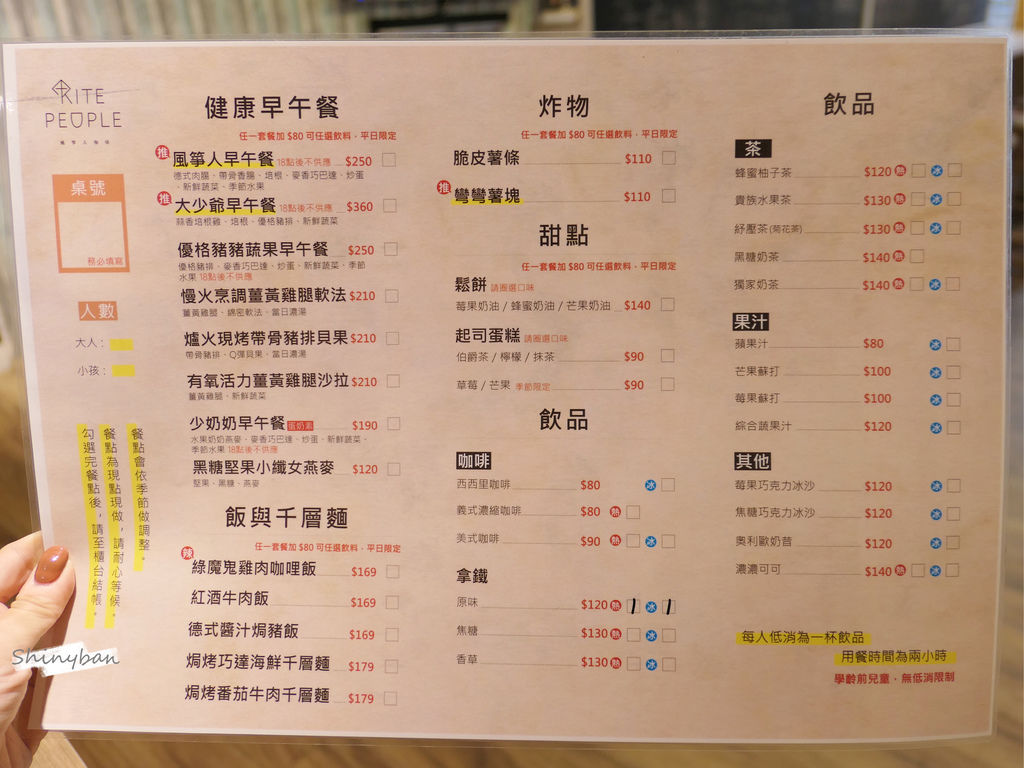 KITE
PEOPLE
風箏人咖啡
桌號
務必填寫
人數
大人：
小孩：
餐點會依季節做調整。
餐點為現點現做，請耐心等候。
勾選完餐點後，請至櫃台結帳。
Shinyban
健康早午餐
任一套餐加 $80 可任選飲料，平日限定
推 風箏人早午餐 18點後不供應 $250
德式肉腸、帶骨香腸、培根、麥香巧巴達、炒蛋
、新鮮蔬菜、季節水果
推 大少爺早午餐 18點後不供應 $360
蒜香培根雞、培根、優格豬排、新鮮蔬菜
優格豬豬蔬果早午餐 $250
優格豬排、麥香巧巴達、炒蛋、新鮮蔬菜、季節
水果 18點後不供應
慢火烹調薑黃雞腿軟法 $210
薑黃雞腿、綿密軟法、當日濃湯
爐火現烤帶骨豬排貝果 $210
帶骨豬排、Q彈貝果、當日濃湯
有氧活力薑黃雞腿沙拉 $210
薑黃雞腿、新鮮蔬菜
少奶奶早午餐 蛋奶素 $190
水果奶奶燕麥、麥香巧巴達、炒蛋、新鮮蔬菜、
季節水果 18點後不供應
黑糖堅果小纖女燕麥 $120
堅果、黑糖、燕麥
飯與千層麵
任一套餐加 $80 可任選飲料，平日限定
辣 綠魔鬼雞肉咖哩飯 $169
紅酒牛肉飯 $169
德式醬汁焗豬飯 $169
焗烤巧達海鮮千層麵 $179
焗烤番茄牛肉千層麵 $179
炸物
任一套餐加 $80 可任選飲料，平日限定
脆皮薯條 $110
推 彎彎薯塊 $110
甜點
任一套餐加 $80 可任選飲料，平日限定
鬆餅 請圈選口味
莓果奶油 / 蜂蜜奶油 / 芒果奶油 $140
起司蛋糕 請圈選口味
伯爵茶 / 檸檬 / 抹茶 $90
草莓 / 芒果 季節限定 $90
飲品
咖啡
西西里咖啡 $80 冰
義式濃縮咖啡 $80 熱
美式咖啡 $90 熱 冰
拿鐵
原味 $120 熱 冰
焦糖 $130 熱 冰
香草 $130 熱 冰
飲品
茶
蜂蜜柚子茶 $120 熱 冰
貴族水果茶 $130 熱 冰
紓壓茶(菊花茶) $130 熱 冰
黑糖奶茶 $140 熱
獨家奶茶 $140 熱 冰
果汁
蘋果汁 $80 冰
芒果蘇打 $100 冰
莓果蘇打 $100 冰
綜合蔬果汁 $120 冰
其他
莓果巧克力冰沙 $120 冰
焦糖巧克力冰沙 $120 冰
奧利歐奶昔 $120 冰
濃濃可可 $140 熱 冰
每人低消為一杯飲品
用餐時間為兩小時
學齡前兒童，無低消限制